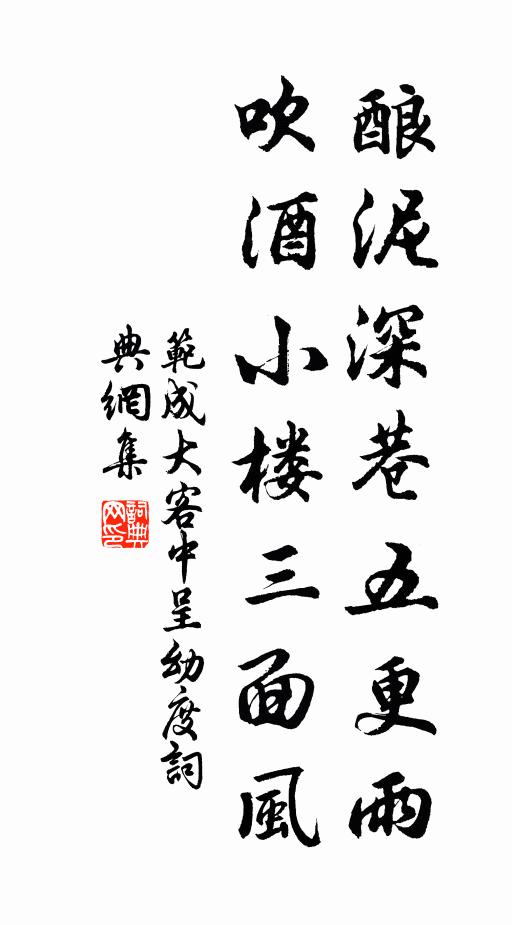 酿泥深巷五更雨
吹酒小楼三面風
範成大客中呈幼度詞
典網集
詞典网印